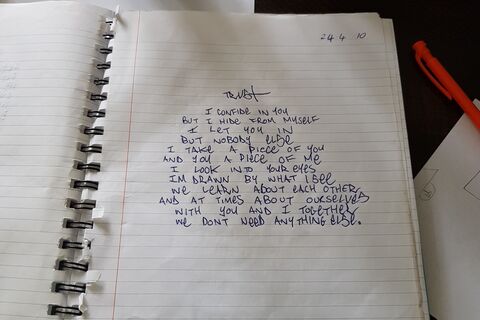 24.4.10
TRUST
I CONFIDE IN YOU
BUT I HIDE FROM MYSELF
I LET YOU IN
BUT NOBODY ELSE
I TAKE A PIECE OF YOU
AND YOU A PIECE OF ME
I LOOK INTO YOUR EYES
IM DRAWN BY WHAT I SEE
WE LEARN ABOUT EACH OTHER
AND AT TIMES ABOUT OURSELVES
WITH YOU AND I TOGETHER
WE DONT NEED ANYTHING ELSE.